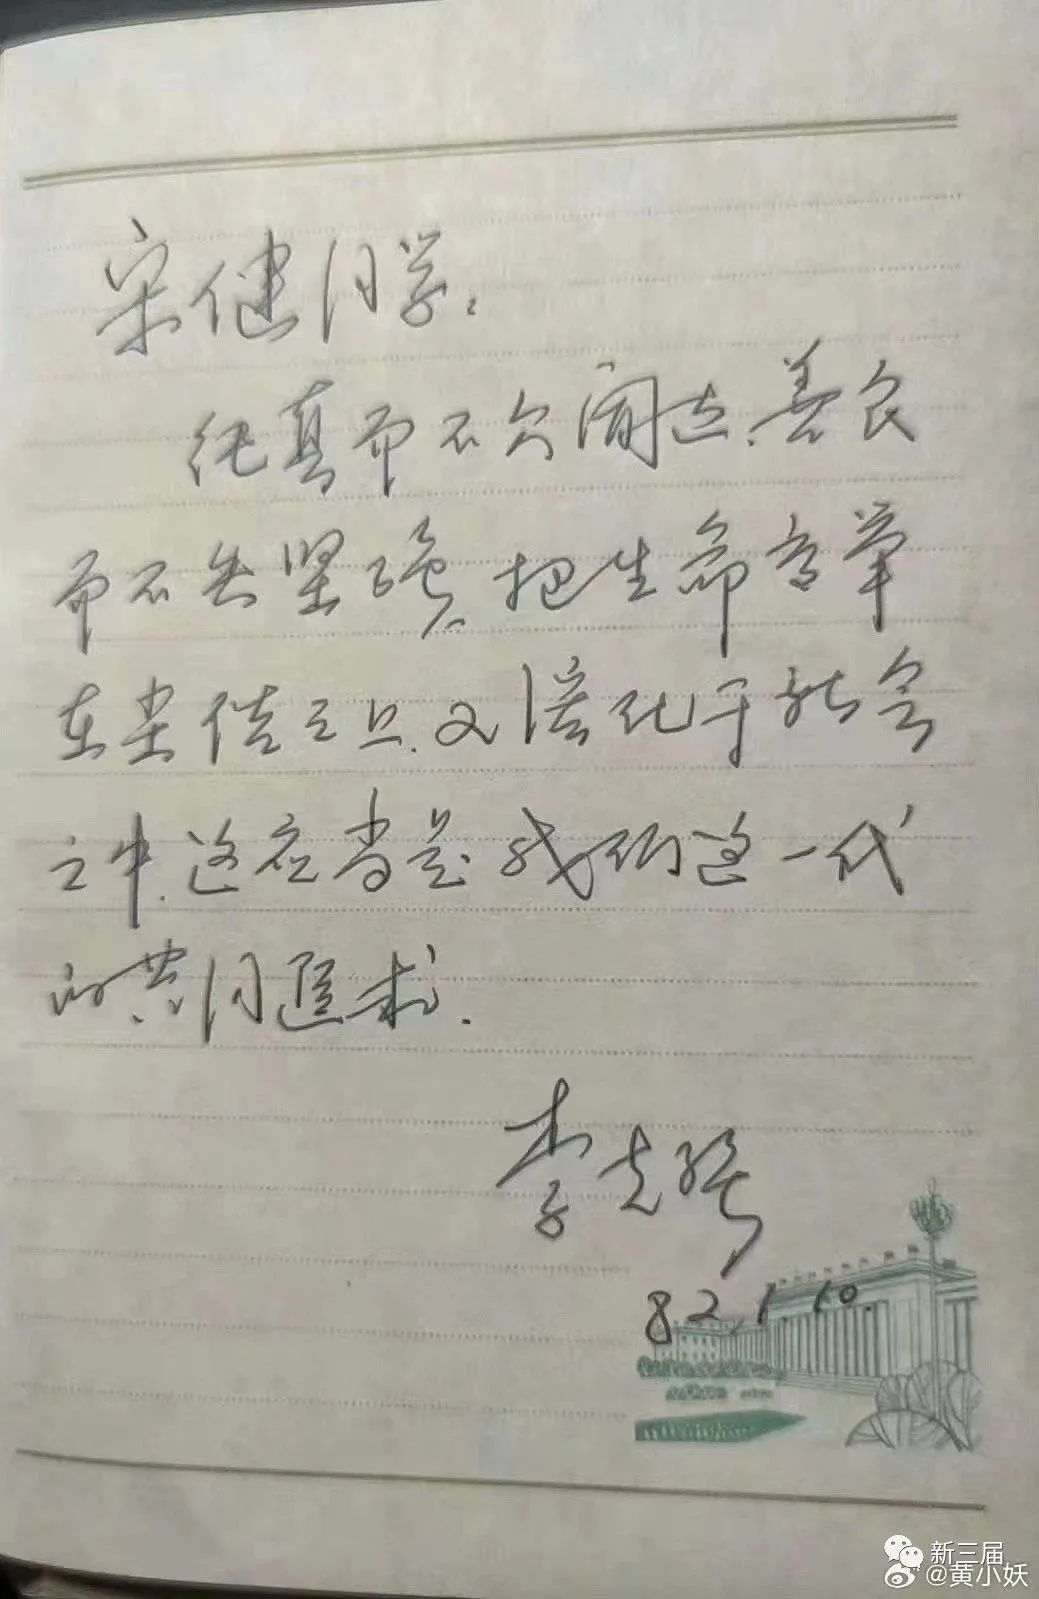 宋健同学：
纯真而不欠阔达，善良
而不失坚强，把生命高举
在尘俗之上，又溶化于社会
之中，这应当是我们这一代
的共同追求．
李克强
82.1.10.
新三届
@黄小妖